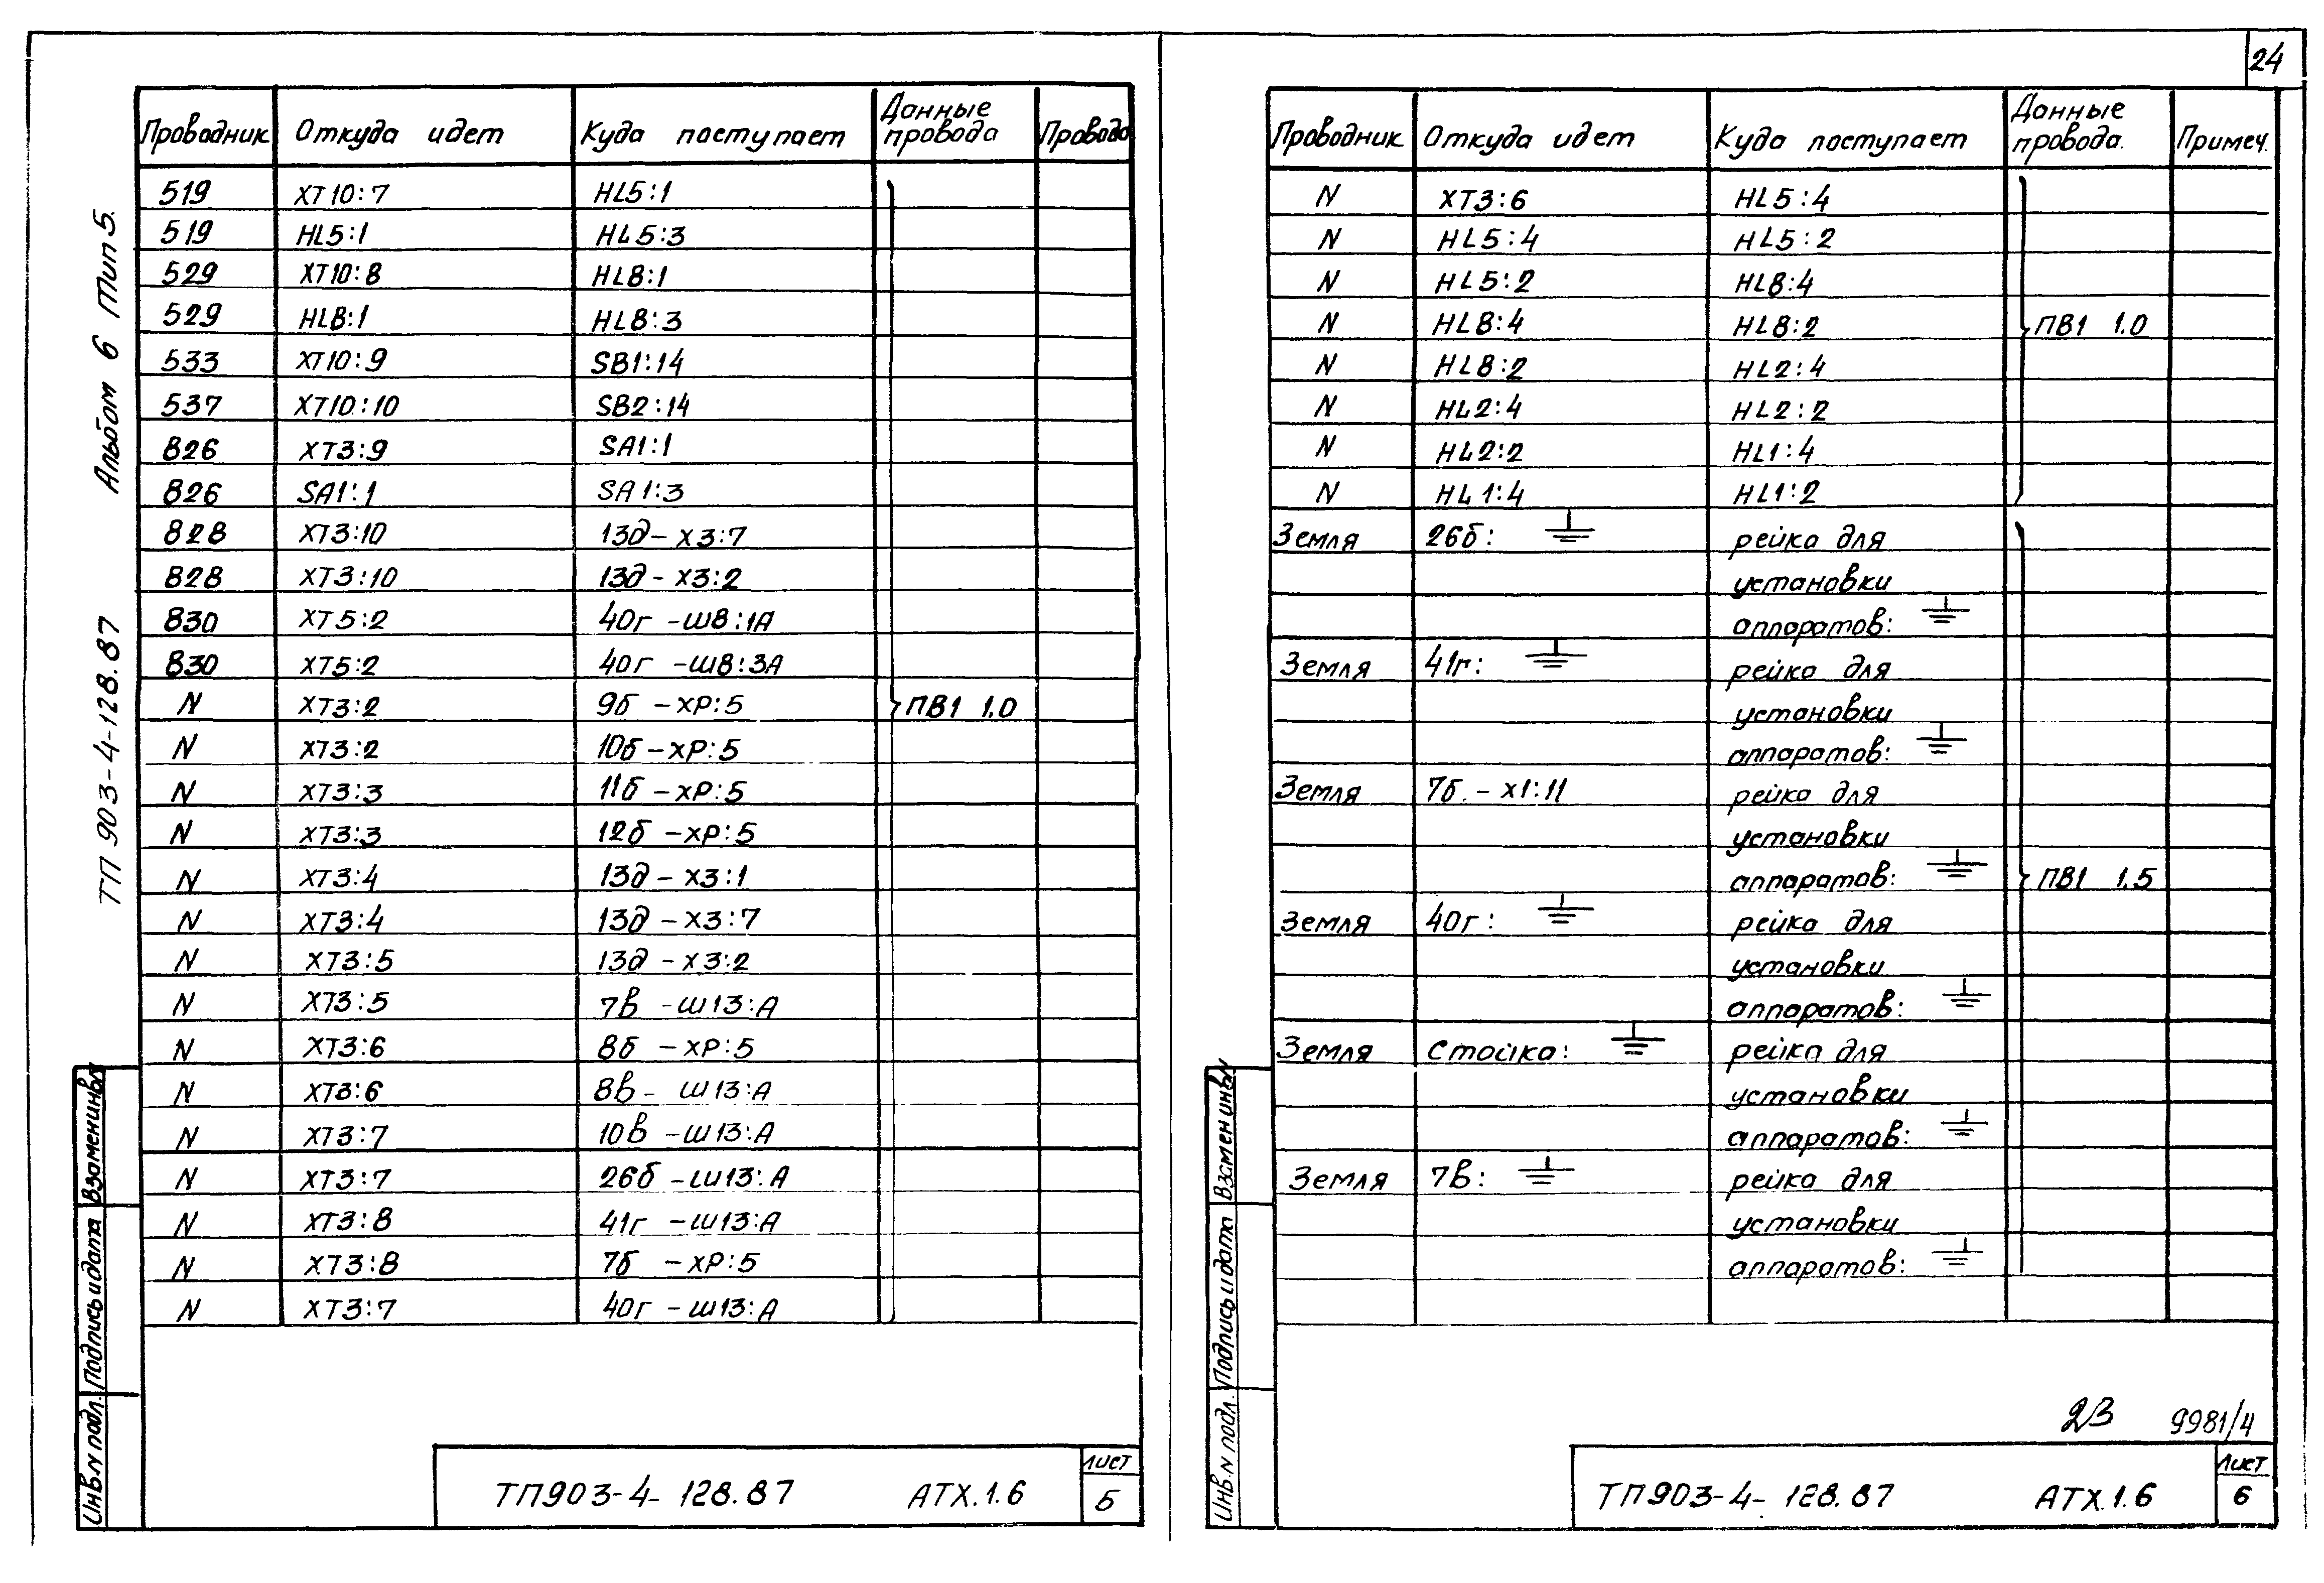 24
Альбом 6 Тип 5.
ТП 903-4-128.87
Проводник Откуда идет Куда поступает Данные провода Провода
519 XT10:7 HL5:1
519 HL5:1 HL5:3
529 XT10:8 HL8:1
529 HL8:1 HL8:3
533 XT10:9 SB1:14
537 XT10:10 SB2:14
826 XT3:9 SA1:1
826 SA1:1 SA1:3
828 XT3:10 13д-X3:7
828 XT3:10 13д-X3:2
830 XT5:2 40г-Ш8:1А
830 XT5:2 40г-Ш8:3А
N XT3:2 9б-ХР:5 ПВ1 1.0
N XT3:2 10б-ХР:5
N XT3:3 11б-ХР:5
N XT3:3 12б-ХР:5
N XT3:4 13д-X3:1
N XT3:4 13д-X3:7
N XT3:5 13д-X3:2
N XT3:5 7в-Ш13:А
N XT3:6 8б-ХР:5
N XT3:6 8в-Ш13:А
N XT3:7 10в-Ш13:А
N XT3:7 26б-Ш13:А
N XT3:8 41г-Ш13:А
N XT3:8 7б-ХР:5
N XT3:7 40г-Ш13:А
Взамен инв.N
Подпись и дата
Инв.N подл.
ТП903-4-128.87 АТХ.1.6
Лист
5
Проводник Откуда идет Куда поступает Данные провода. Примеч.
N XT3:6 HL5:4
N HL5:4 HL5:2
N HL5:2 HL8:4
N HL8:4 HL8:2 ПВ1 1.0
N HL8:2 HL2:4
N HL2:4 HL2:2
N HL2:2 HL1:4
N HL1:4 HL1:2
Земля 26б: рейка для
установки
аппаратов:
Земля 41г: рейка для
установки
аппаратов:
Земля 7б.-X1:11 рейка для
установки
аппаратов: ПВ1 1.5
Земля 40г: рейка для
установки
аппаратов:
Земля Стойка: рейка для
установки
аппаратов:
Земля 7в: рейка для
установки
аппаратов:
Взамен инв.N
Подпись и дата
Инв.N подл.
23 9981/4
ТП903-4-128.87 АТХ.1.6
Лист
6